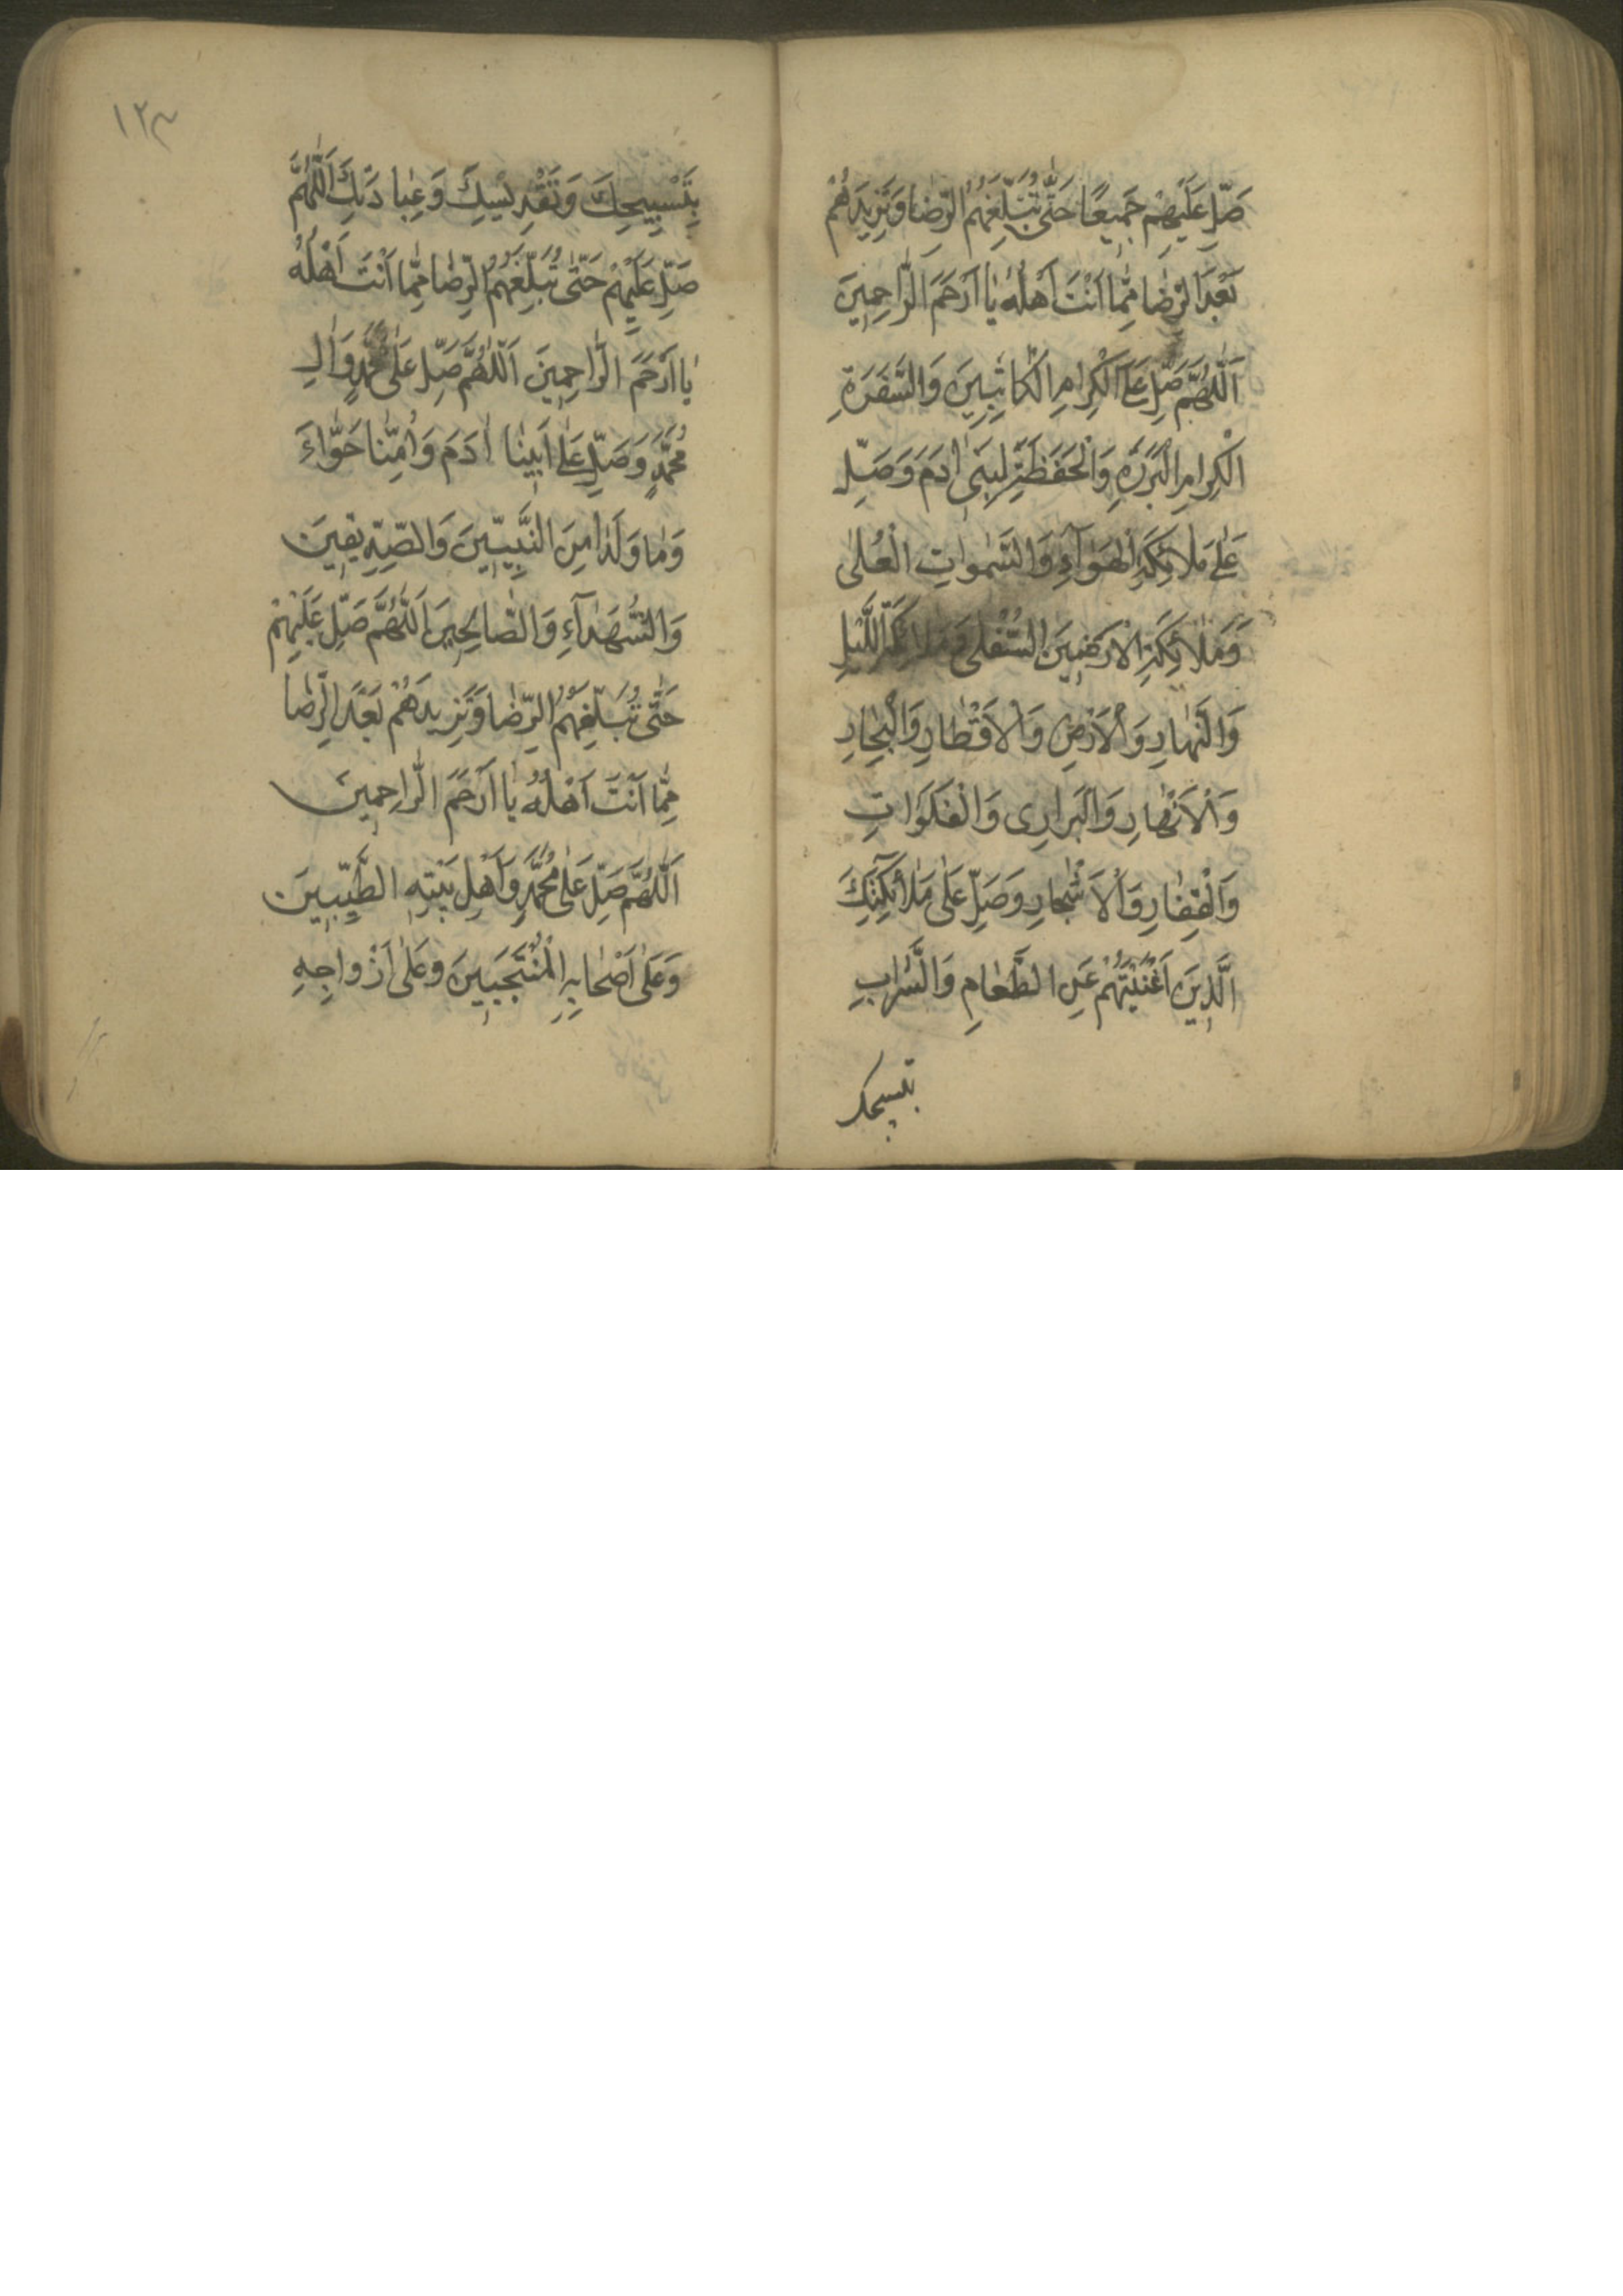 صَلِّ عَلَيْهِمْ جَمِيعًا حَتّٰى تُبَلِّغَهُمُ الرِّضَا وَتَزِيدَهُمْ
بَعْدَ الرِّضَا مِمَّا اَنْتَ اَهْلُهُ يَا اَرْحَمَ الرَّاحِمِينَ
اَللّٰهُمَّ صَلِّ عَلَى الْكِرَامِ الْكَاتِبِينَ وَالسَّفَرَةِ
الْكِرَامِ الْبَرَرَةِ وَالْحَفَظَةِ لِبَنِى اٰدَمَ وَصَلِّ
عَلٰى مَلَائِكَةِ الْهَوَآءِ وَالسَّمٰوَاتِ الْعُلٰى
وَمَلٰائِكَةِ الْاَرَضِينَ السُّفْلٰى وَمَلَائِكَةِ اللَّيْلِ
وَالنَّهَارِ وَالْاَرْضِ وَالْاَقْطَارِ وَالْبِحَارِ
وَالْاَنْهَارِ وَالْبَرَارِى وَالْفَلَوَاتِ
وَالْقِفَارِ وَالْاَشْجَارِ وَصَلِّ عَلٰى مَلَائِكَتِكَ
الَّذِينَ اَغْنَيْتَهُمْ عَنِ الطَّعَامِ وَالشَّرَابِ
بتسبيحك
١٢٣
بِتَسْبِيحِكَ وَتَقْدِيسِكَ وَعِبَادَتِكَ اَللّٰهُمَّ
صَلِّ عَلَيْهِمْ حَتّٰى تُبَلِّغَهُمُ الرِّضَا مِمَّا اَنْتَ اَهْلُهُ
يَا اَرْحَمَ الرَّاحِمِينَ اَللّٰهُمَّ صَلِّ عَلٰى مُحَمَّدٍ وَاٰلِ
مُحَمَّدٍ وَصَلِّ عَلٰى اَبِينَا اٰدَمَ وَاُمِّنَا حَوَّاءَ
وَمَا وَلَدَا مِنَ النَّبِيِّينَ وَالصِّدِّيقِينَ
وَالشُّهَدَآءِ وَالصَّالِحِينَ اَللّٰهُمَّ صَلِّ عَلَيْهِمْ
حَتّٰى تُبَلِّغَهُمُ الرِّضَا وَتَزِيدَهُمْ بَعْدَ الرِّضَا
مِمَّا اَنْتَ اَهْلُهُ يَا اَرْحَمَ الرَّاحِمِينَ
اَللّٰهُمَّ صَلِّ عَلٰى مُحَمَّدٍ وَاَهْلِ بَيْتِهِ الطَّيِّبِينَ
وَعَلٰى اَصْحَابِهِ الْمُنْتَجَبِينَ وَعَلٰى اَزْوَاجِهِ